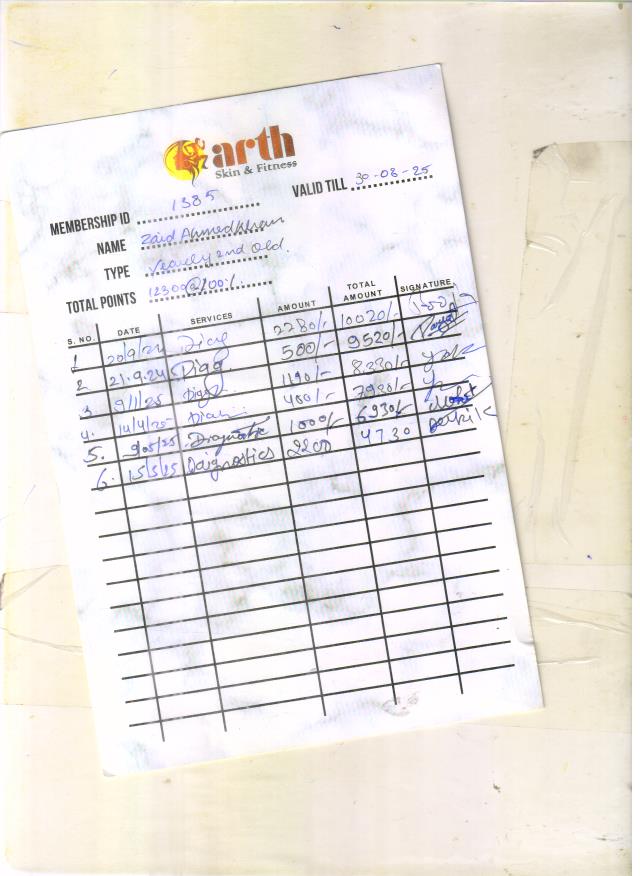 arth
Skin & Fitness
MEMBERSHIP ID 1385
VALID TILL 30-08-25
NAME Zaid Ahmed Khan
TYPE Yearly 2nd Old.
TOTAL POINTS 12300@100%
S. NO. DATE SERVICES AMOUNT TOTAL AMOUNT SIGNATURE
1 20/9/24 Diag 2280/- 10020/-
2 21.9.24 Diag 500/- 9520/-
3 9/1/25 Diag 1190/- 8330/-
4. 14/4/25 400/- 7930/-
5. 9/05/25 Diagnostic 1000/- 6930/-
6. 15/5/25 Daignostics 2200 4730